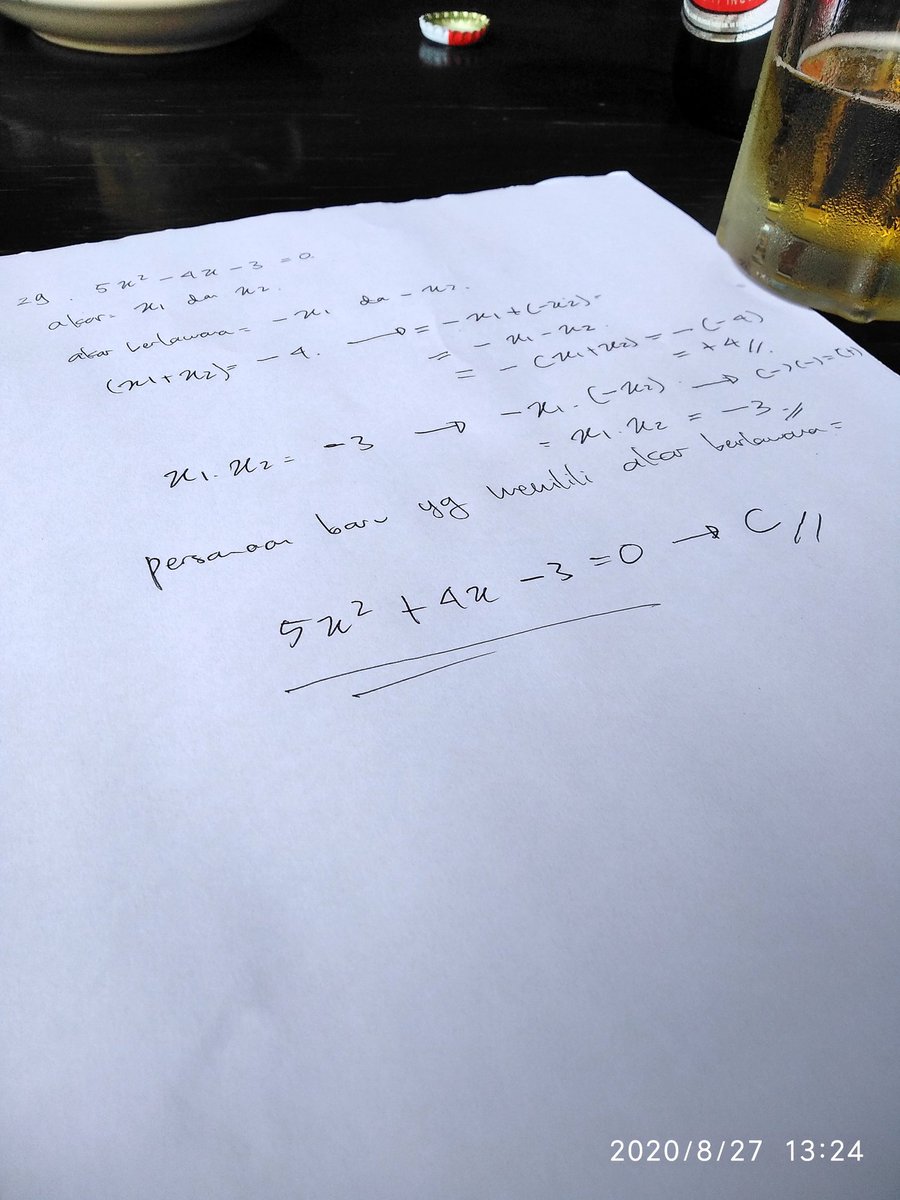 29. 5x² - 4x - 3 = 0
akar = x₁ dan x₂.
akar berlawana = -x₁ da -x₂.
(x₁+x₂) = -4. → = -x₁+(-x₂) =
= -x₁ - x₂
= -(x₁+x₂) = -(-4)
= +4 //.
x₁.x₂ = -3 → -x₁.(-x₂). → (-)(-)=(+)
= x₁.x₂ = -3 //
persamaan baru yg memiliki akar berlawana =
5x² + 4x - 3 = 0 → C //
2020/8/27 13:24